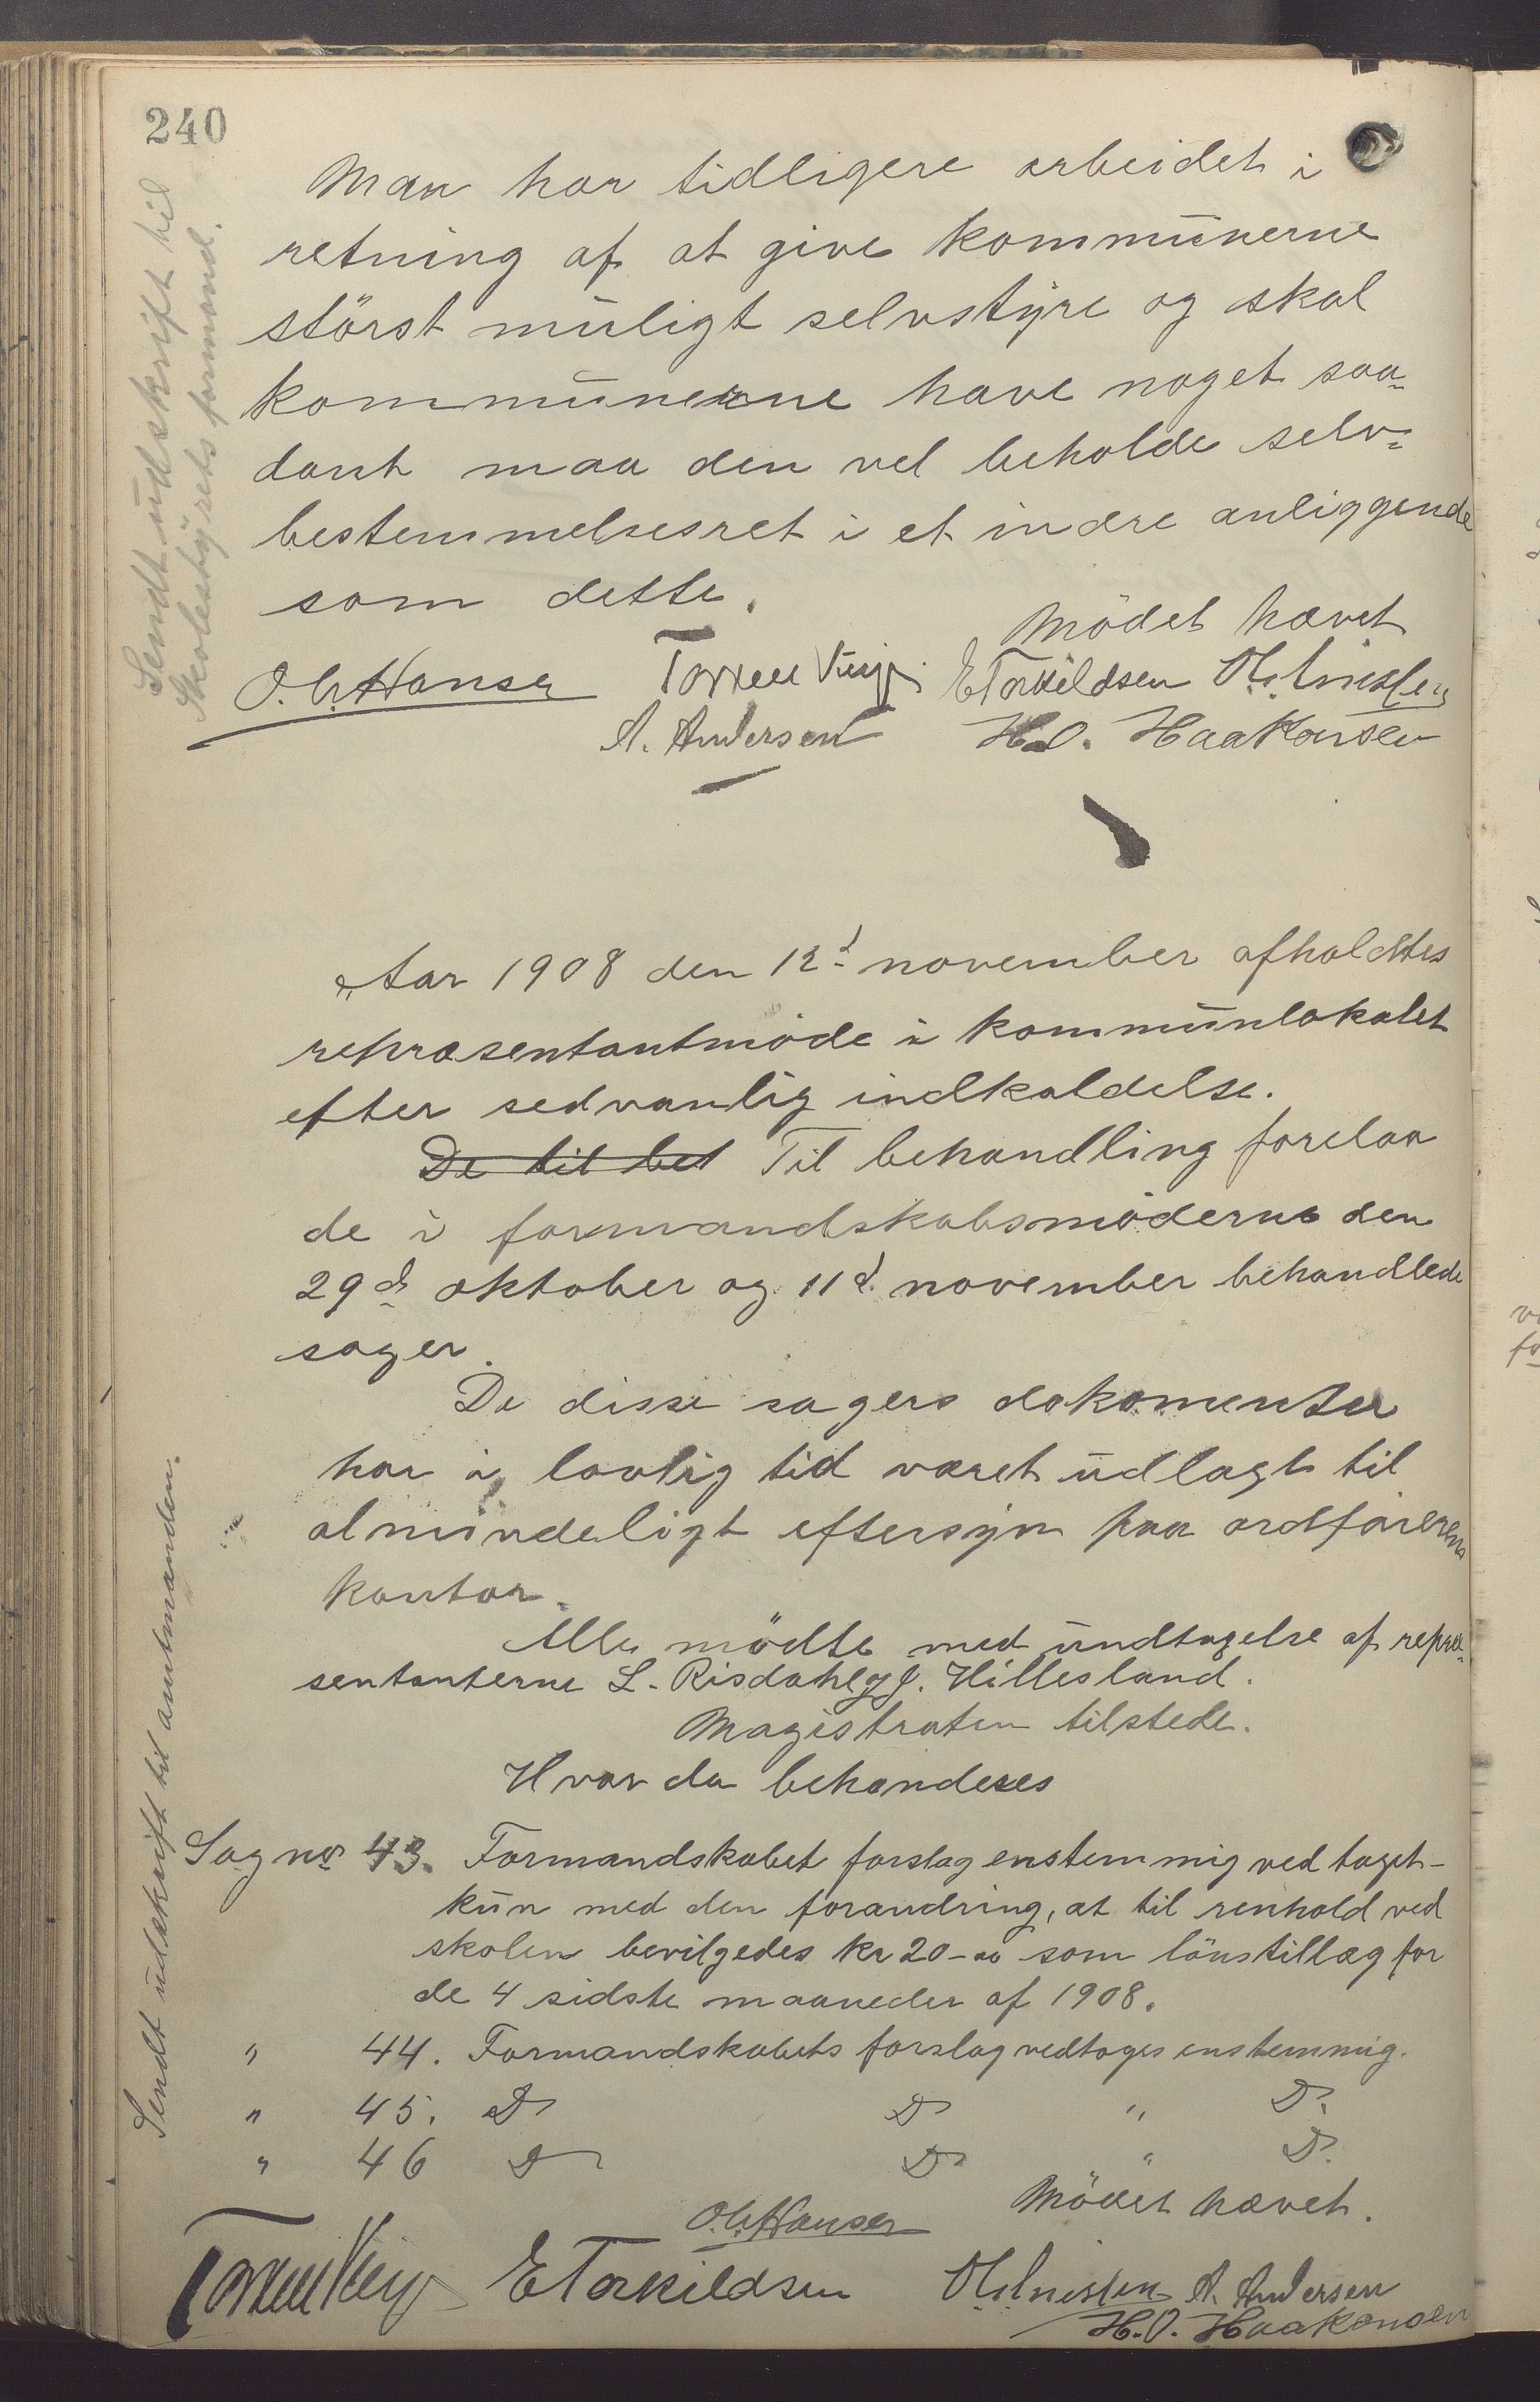 240
Sendt udskrift til
Skolestyrets formand.
Man har tidligere arbeidet i
retning af at give kommunerne
störst muligt selvstyre og skal
kommunerne have noget saa-
dant maa den vel beholde selv-
bestemmelsesret i et indre anliggende
som dette.
Mödet hævet
O. Chr. Hansen Torkell Vinje. E Torkildsen
A. Andersen H. O. Haakonsen
Aar 1908 den 12d november afholdtes
repræsentantmöde i kommunlokalet
efter sedvanlig indkaldelse.
De til be Til behandling forelaa
de i formandskabsmöderne den
29d oktober og 11d november behandlede
sager.
De disse sagers dokomenter
har i lovlig tid været udlagt til
almindeligt eftersyn paa ordförerens
kontor.
Alle mödte med undtagelse af repræ-
sentanterne L. Risdahl og J. Hillesland.
Magistraten tilstede.
Hvor da behandeses
Sendt udskrift til amtmanden.
Sag no 43. Formandskabet forslag enstemmig vedtaget -
kun med den forandring, at til renhold ved
skolen bevilgedes kr 20-00 som lönstillæg for
de 4 sidste maaneder af 1908.
" 44. Formandskabets forslag vedtoges enstemmig.
" 45. Do Do " Do
" 46 Do Do " Do
Mödet hævet.
O. Chr. Hansen
Torkell Vinje E Torkildsen A. Andersen
H. O. Haakonsen